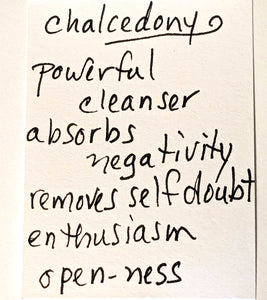 chalcedony
powerful
cleanser
absorbs
negativity
removes self doubt
enthusiasm
open-ness